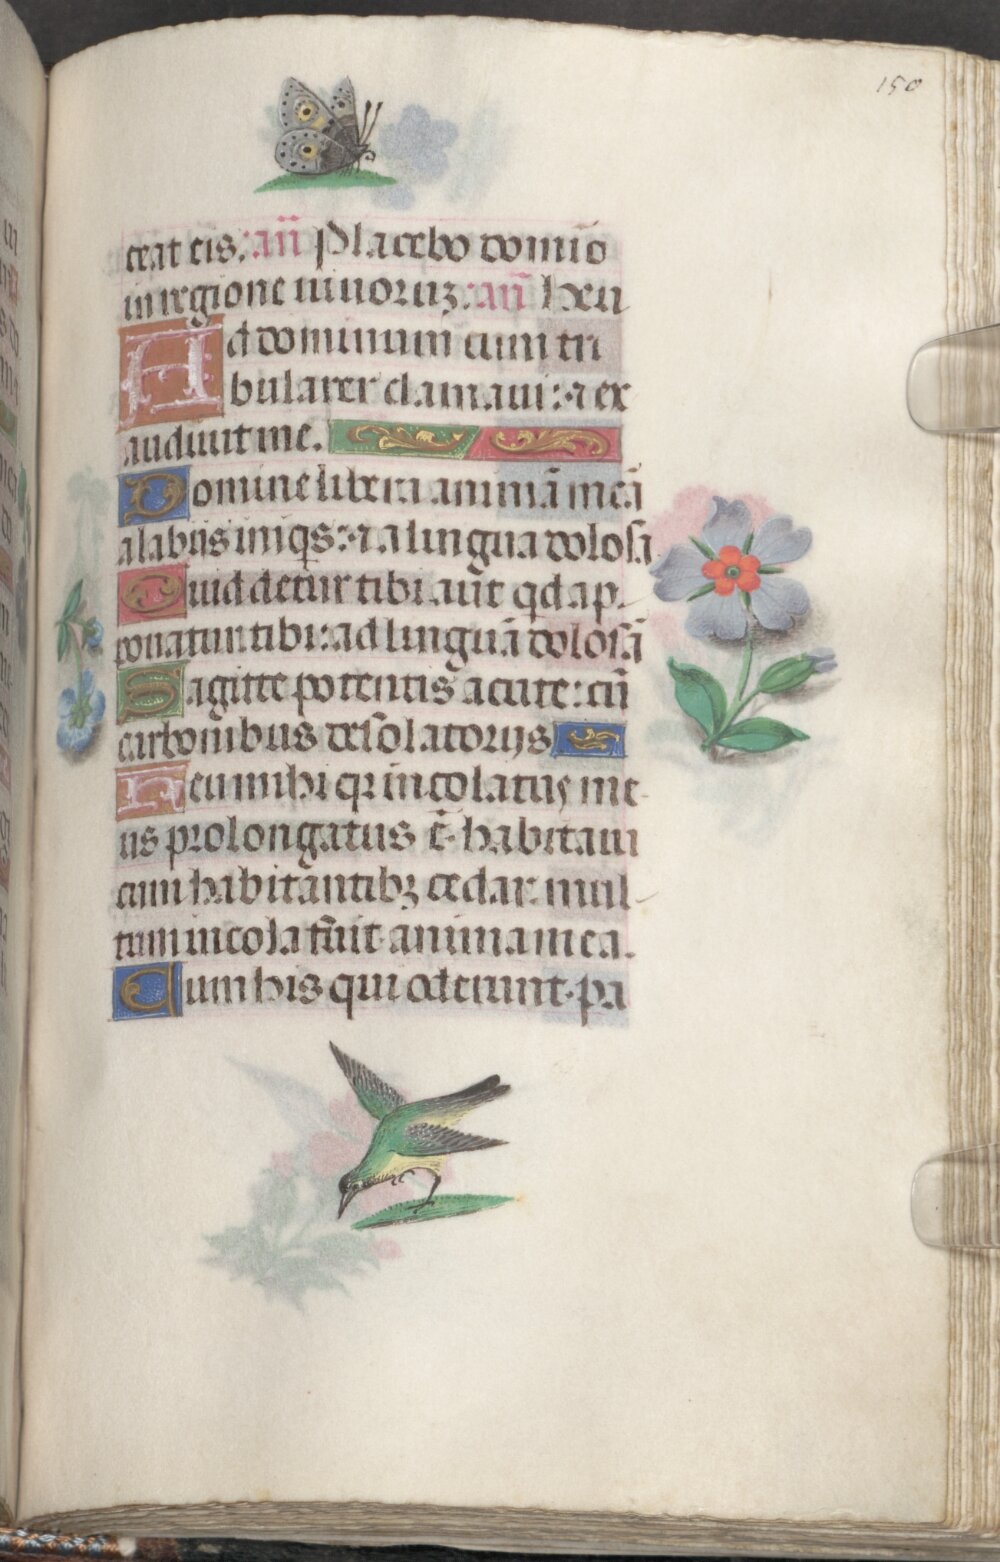 150
ceat eis. añ Placebo domĩo
in regione uiuoruz. añ heu
Ad dominum cum tri
bularer clamaui: ⁊ ex
audiuit me.
Domine libera animã meã
a labiis iniqs: ⁊ a lingua dolosa
Quid detur tibi aut qd ap
ponatur tibi: ad linguã dolosã
Sagitte potentis acute: cũ
carbonibus desolatorijs
Heu mihi qr incolatus me
us prolongatus ẽ habitaui
cum habitãntibz cedar: mul
tum incola fuit anima mea.
Cum his qui oderunt pa